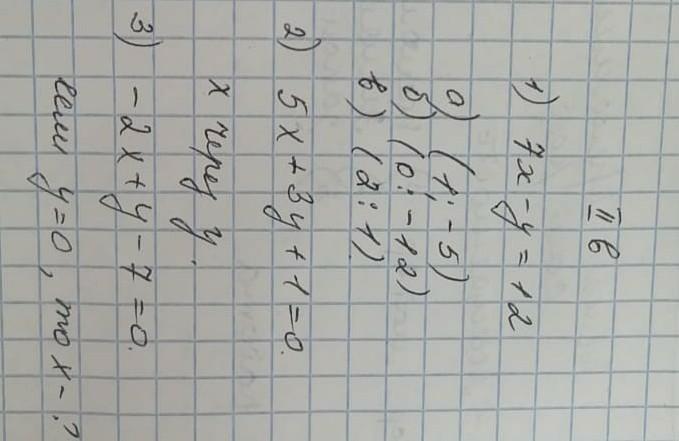 II в
1) 7x - y = 12
а) (1; -5)
б) (0; -12)
в) (2; 1)
2) 5x + 3y + 1 = 0.
x через y.
3) -2x + y - 7 = 0.
если y = 0, то x - ?